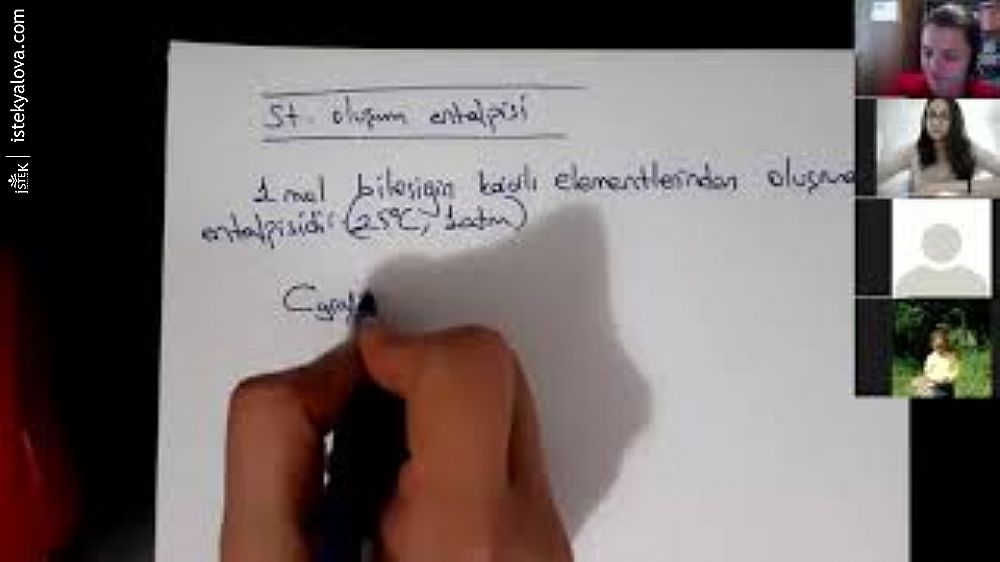 istekyalova.com
İSTEK
St. oluşum entalpisi
1 mol bileşiğin kararlı elementlerinden oluşma
entalpisidir (25°C, 1 atm)
Cgraf